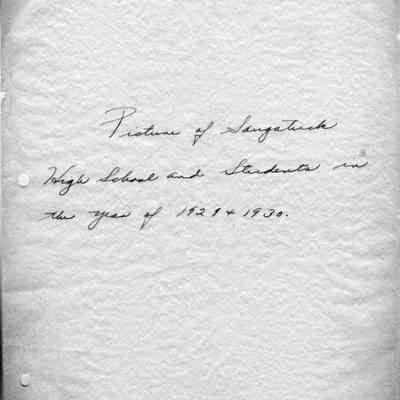 Picture of Saugatuck
High School and Students in
the year of 1929 & 1930.